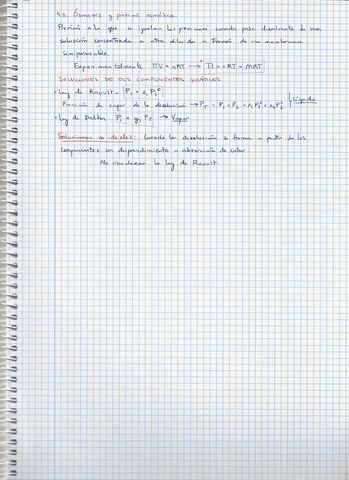 4.3. Ósmosis y presión osmótica.
Presión a la que se igualan las presiones cuando pasa disolvente de una
solución concentrada a otra diluida a través de una membrana
semipermeable.
Experimentalmente ΠV = nRT → Π = cRT = MRT
SOLUCIONES DE DOS COMPONENTES VOLÁTILES
Ley de Raoult. P₁ = x₁P₁⁰
Presión de vapor de la disolución → P_T = P₁ + P₂ = x₁P₁⁰ + x₂P₂⁰ Líquido
Ley de Dalton P₁ = y₁ P_T → Vapor
Soluciones no ideales: Cuando la disolución se forma a partir de los
componentes con desprendimiento o absorción de calor.
No obedecen la ley de Raoult.